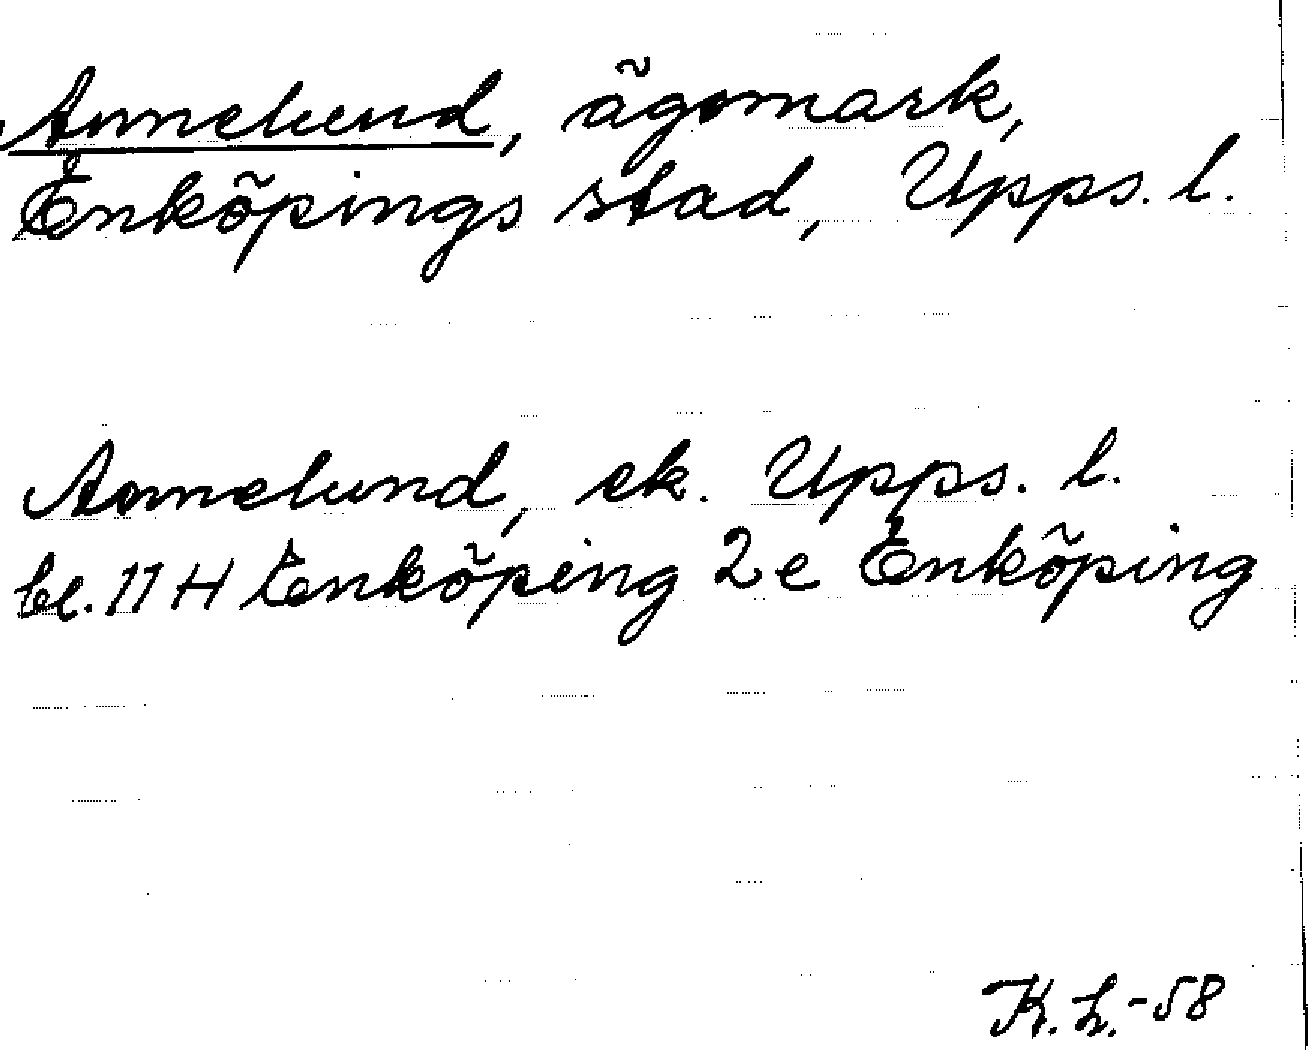 Annelund, ägomark,
Enköpings stad, Upps. l.
Annelund, ek. Upps. l.
bl. 11 H Enköping 2e Enköping
K. L. -58